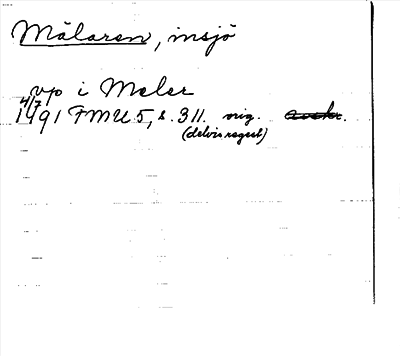 Mälaren, insjö
vp i Meler
4/7
1491 FMU 5, s. 311. orig. avskr.
(delvis regest)